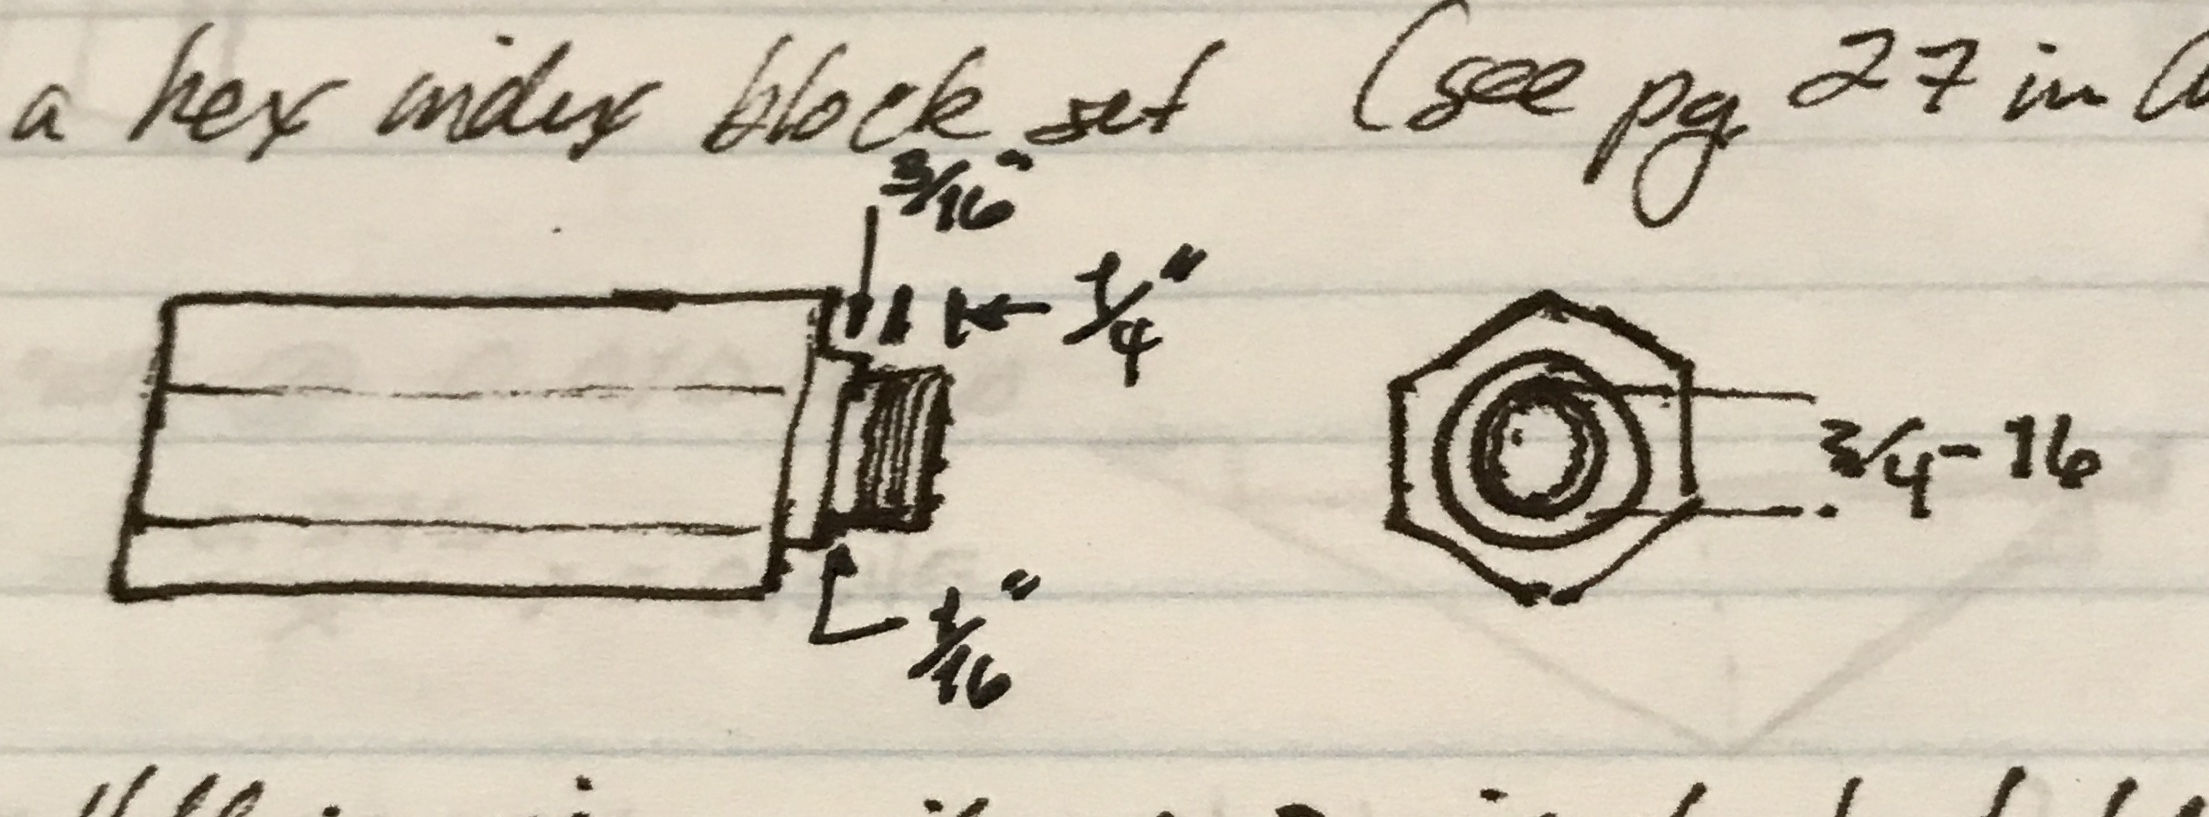 a hex index block set (see pg. 27 in
3/16"
1/4"
3/4-16
1/16"